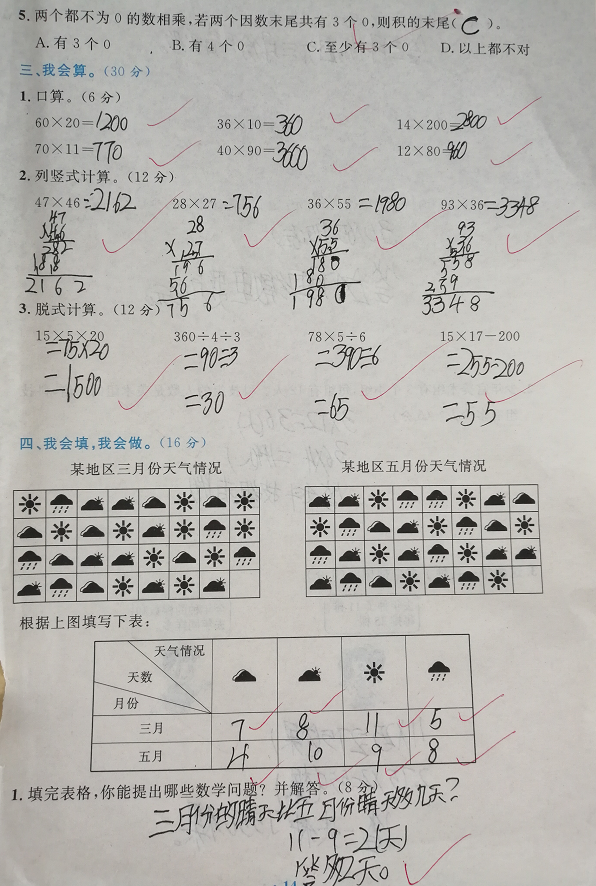 5. 两个都不为0的数相乘,若两个因数末尾共有3个0,则积的末尾( C )。
A. 有3个0 B. 有4个0 C. 至少有3个0 D. 以上都不对
三、我会算。(30分)
1. 口算。(6分)
60×20=1200 36×10=360 14×200=2800
70×11=770 40×90=3600 12×80=960
2. 列竖式计算。(12分)
47×46=2162 28×27=756 36×55=1980 93×36=3348
47 28 36 93
×46 ×27 ×55 ×36
282 196 180 558
188 56 180 279
2162 756 1980 3348
3. 脱式计算。(12分)
15×5×20 360÷4÷3 78×5÷6 15×17-200
=75×20 =90÷3 =390÷6 =255-200
=1500 =30 =65 =55
四、我会填,我会做。(16分)
某地区三月份天气情况 某地区五月份天气情况
根据上图填写下表:
天气情况
天数
月份
三月 7 8 11 5
五月 4 10 9 8
1. 填完表格,你能提出哪些数学问题?并解答。(8分)
三月份的晴天比五月份晴天多几天?
11-9=2(天)
答多2天。